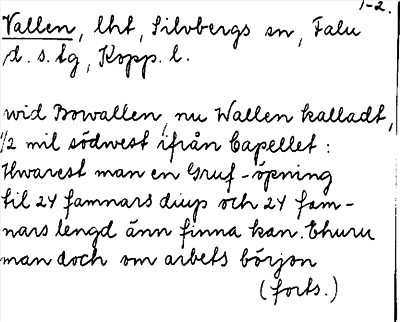 1-2.
Vallen, lht, Silvbergs sn, Falu
d. s. lg, Kopp. l.
wid Bowallen, nu Wallen kalladt,
1/2 mil södwest ifrån Capellet:
Hwarest man en Gruf-öpning
til 24 famnars diup och 24 fam-
nars lengd änn finna kan. Ehuru
man doch om arbets början
(forts.)